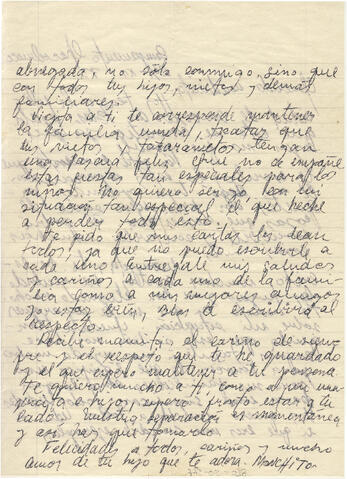 abnegada, no sólo conmigo, sino que
con todos tus hijos, nietos y demás
familiares.
Vieja a ti te corresponde mantener
la familia unida, tratar que
tus nietos y tataranietos tengan
una pascua feliz, que no se empañe
estas fiestas tan especiales para los
niños. No quiero ser yo con mi
situación tan especial el que heche
a perder todo esto.
Te pido que mis cartas las lean
todos, ya que no puedo escribirle a
cada uno entrégale mis saludos
y cariños a cada uno de la fami-
lia como a mis mejores amigos
yo estoy bien, Blas te escribirá al
respecto.
Recibe mamita el cariño de siem-
pre y el respeto que te he guardado
y el que espero mantener a tu persona.
Te quiero mucho a ti, como a mi
e hijos espero pronto estar a tu
lado, nuestra separación es momentánea
y así hay que tomarlo.
Felicidades a todos, cariños y mucho
amor de tu hijo que te adora. MONCHITO.